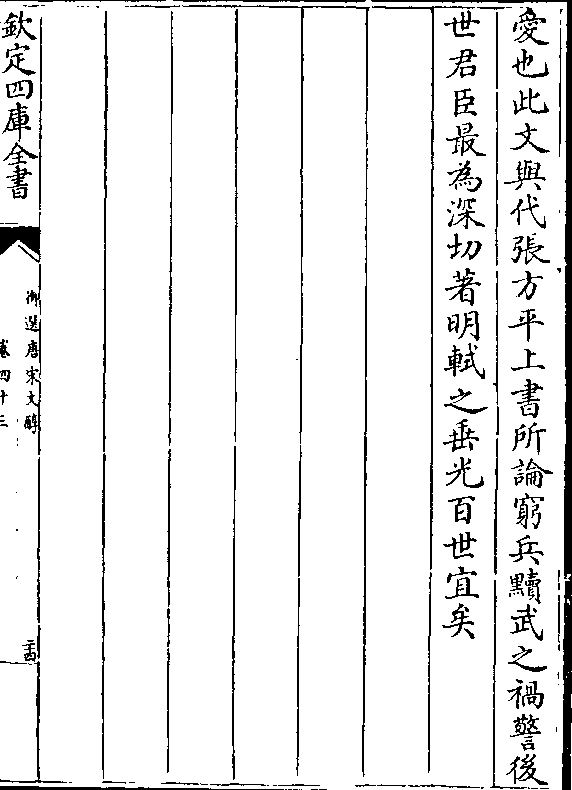 愛也此文與代張方平上書所論窮兵黷武之禍警後
世君臣最為深切著明軾之垂光百世宜矣
欽定四庫全書
御選唐宋文醇
卷四十三